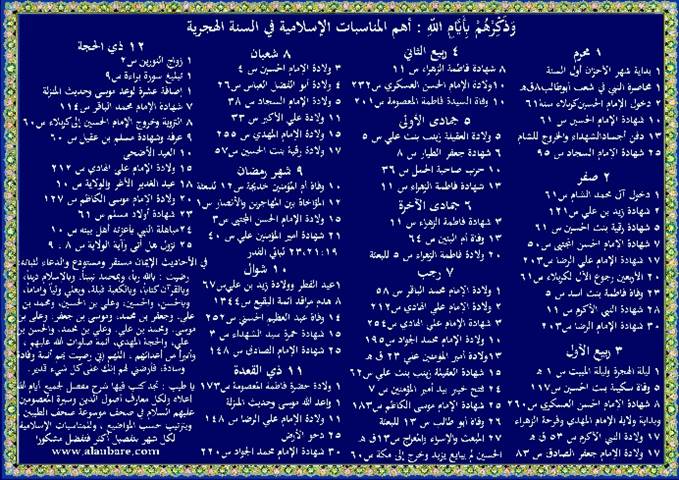 وَذَكِّرْهُمْ بِأَيَّامِ اللَّهِ : أهم المناسبات الإسلامية في السنة الهجرية
١ محرم
١ بداية شهر الأحزان أول السنة
١ محاصرة النبي في شعب أبوطالب ٨ق هـ
٢ دخول الإمام الحسين كربلاء سنة ٦١
١٠ شهادة الإمام الحسين س ٦١
١٣ دفن أجساد الشهداء والخروج للشام
٢٥ شهادة الإمام السجاد س ٩٥
٢ صفر
١ دخول آل محمد الشام س ٦١
٢ شهادة زيد بن علي س ١٢١
٥ شهادة رقية بنت الحسين س ٦١
٧ شهادة الامام الحسن المجتبى س ٥٠
١٧ شهادة الإمام علي الرضا س ٢٠٣
٢٠ الأربعين رجوع الآل لكربلاء س ٦١
٢٣ وفاة فاطمة بنت اسد س ٥
٢٨ شهادة النبي الأكرم س ١١
٣٠ شهادة الإمام الرضا س ٢٠٣
٣ ربيع الأول
١ ليلة الهجرة وليلة المبيت س ١ هـ
٥ وفاة سكينة بنت الحسين س ١١٧
٨ شهادة الإمام الحسن العسكري س ٢٦٠
وبداية ولاية الإمام المهدي وفرحة الزهراء
١٧ ولادة النبي الأكرم س ٥٣ ق هـ
١٧ ولادة الإمام جعفر الصادق س ٨٣
٤ ربيع الثاني
٨ شهادة فاطمة الزهراء س ١١
١٠ ولادة الإمام الحسن العسكري س ٢٣٢
١٠ وفاة السيدة فاطمة المعصومة س ٢٠١
٥ جمادى الأولى
٥ ولادة العقيلة زينب بنت علي س ٥
٦ شهادة جعفر الطيار س ٨
١٠ حرب صاحبة الجمل س ٣٦
١٣ شهادة فاطمة الزهراء س ١١
٦ جمادى الآخرة
٣ شهادة فاطمة الزهراء س ١١
١٣ وفاة أم البنين س ٦٤
٢٠ ولادة فاطمة الزهراء س ٥ للبعثة
٧ رجب
١ ولادة الإمام محمد الباقر س ٥٨
٢ ولادة الإمام علي الهادي س ٢١٢
٣ شهادة الإمام علي الهادي س ٢٥٤
١٠ ولادة الإمام محمد الجواد س ١٩٥
١٣ ولادة أمير المؤمنين علي ٢٣ ق هـ
١٥ شهادة العقيلة زينب بنت علي س ٦٢
٢٤ فتح خيبر بيد أمير المؤمنين س ٧
٢٥ شهادة الإمام موسى الكاظم س ١٨٣
٢٦ وفاة أبو طالب س ١٣ للبعثة
٢٧ المبعث والإسراء والمعراج س ١٣ ق هـ
الحسين لم يبايع يزيد وخرج إلى مكة س ٦٠
٨ شعبان
٣ ولادة الإمام الحسين س ٤
٤ ولادة أبو الفضل العباس س ٢٦
٥ ولادة الإمام السجاد س ٣٨
١١ ولادة علي الأكبر س ٣٣
١٥ ولادة الإمام المهدي س ٢٥٥
١٧ ولادة رقية بنت الحسين س ٥٧
٩ شهر رمضان
١٠ وفاة أم المؤمنين خديجة س ١٢ للبعثة
١٢ المؤاخاة بين المهاجرين والأنصار س ١
١٥ ولادة الإمام الحسن المجتبى س ٣
٢١ شهادة امير المؤمنين علي س ٤٠
٢٣،٢١،١٩ ليالي القدر
١٠ شوال
١ عيد الفطر وولادة زيد بن علي س ٦٧
٨ هدم مراقد أئمة البقيع س ١٣٤٤
١٥ وفاة عبد العظيم الحسني س ٢٥٢
١٥ شهادة حمزة سيد الشهداء س ٣
٢٥ شهادة الإمام الصادق س ١٤٨
١١ ذي القعدة
١ ولادة حضرة فاطمة المعصومة س ١٧٣
١ واعد الله موسى وحديث المنزلة
١١ ولادة الإمام علي الرضا س ١٤٨
٢٥ دحو الأرض
٣٠ شهادة الإمام محمد الجواد س ٢٢٠
١٢ ذي الحجة
١ زواج النورين س ٢
١ تبليغ سورة براءة س ٩
١ إضافة عشرة لوعد موسى وحديث المنزلة
٧ شهادة الإمام محمد الباقر س ١١٤
٨ التروية وخروج الإمام الحسين إلى كربلاء س ٦٠
٩ عرفة وشهادة مسلم بن عقيل س ٦٠
١٠ العيد الأضحى
١٥ ولادة الإمام علي الهادي س ٢١٢
١٨ عيد الغدير الأغر والولاية س ١٠
٢٠ ولادة الإمام موسى الكاظم س ١٢٧
٢٣ شهادة أولاد مسلم س ٦١
٢٤ مباهلة النبي بأعزته أهل بيته س ١٠
٢٥ نزول هل أتى وآية الولاية س ٨ . ٩
في الأحاديث الإيمان مستقر ومستودع والدعاء لثباته :
رضيت : بالله ربا، وبمحمد نبياً، وبالإسلام ديناً،
وبالقرآن كتاباً، وبالكعبة قبلة، وبعلي ولياً وإماماً،
وبالحسن، والحسين، وعلي بن الحسين، ومحمد بن
علي، وجعفر بن محمد، وموسى بن جعفر، وعلي بن
موسى، ومحمد بن علي، وعلي بن محمد، والحسن بن
علي، والحجة المهدي، أئمة صلوات الله عليهم ،
وأتبرأ من أعدائهم . اللهم إني رضيت بهم أئمة وقادة
وسادة، فأرضني لهم إنك على كل شيء قدير.
يا طيب : تجد كتب فيها شرح مفصل لجميع أيام الله
أعلاه ولكل معارف أصول الدين وسيرة المعصومين
عليهم السلام في صحف موسوعة صحف الطيبين
وبترتيب حسب المواضيع ، والمناسبات الإسلامية
لكل شهر بتفصيل أكثر فتفضل مشكورا
www.alanbare.com